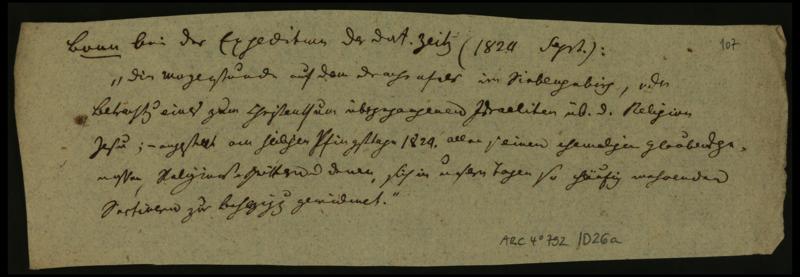 Bonn bei der Expedition der dort. Zeitg (1824 Sept.):
107
„die Morgenstunde auf dem Drachenfels im Siebengebirg, oder
Betrachtg eines zum Christenthum übergegangenen Israeliten üb. d. Religion
Jesu; angestellt am heiligen Pfingsttage 1824. allen seinen ehemaligen Glaubensge-
nossen, Religionsspöttern und denen, sich in unsern Tagen so häufig mehrenden
Sectirern zur Beherzigg gewidmet."
ARC 4° 792 /D26a